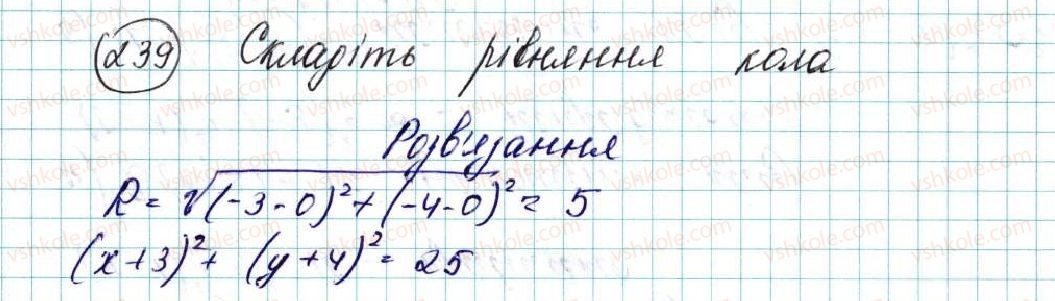 239 Складіть рівняння кола
Розв'язання
R = √(-3-0)² + (-4-0)² = 5
(x+3)² + (y+4)² = 25